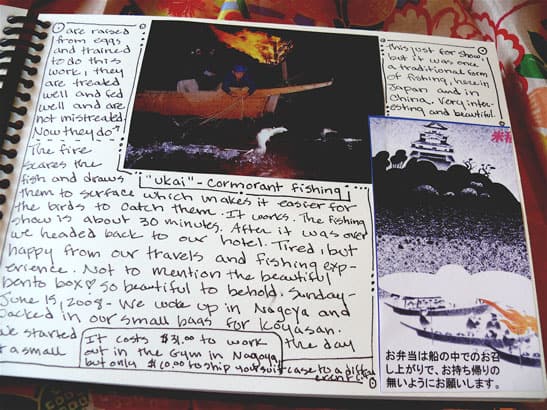 are raised
from eggs
and trained
to do this
work, they
are treated
well and fed
well and are
not mistreated.
Now they do
this just for show,
but it was once
a traditional form
of fishing here in
Japan and in
China. Very inter-
esting and beautiful.
The fire
scares the
fish and draws
"ukai" - Cormorant fishing
them to surface which makes it easier for
the birds to catch them. It works. The fishing
show is about 30 minutes. After it was over
we headed back to our hotel. Tired, but
happy from our travels and fishing exp-
erience. Not to mention the beautiful
bento box ♡ so beautiful to behold. Sunday-
June 15, 2008 - We woke up in Nagoya and
packed in our small bags for Koyasan.
We started the day
a small
It costs $31.00 to work
out in the Gym in Nagoya,
but only $10.00 to ship your suitcase to a different
お弁当は船の中でのお召
し上がりで、お持ち帰りの
無いようにお願いします。